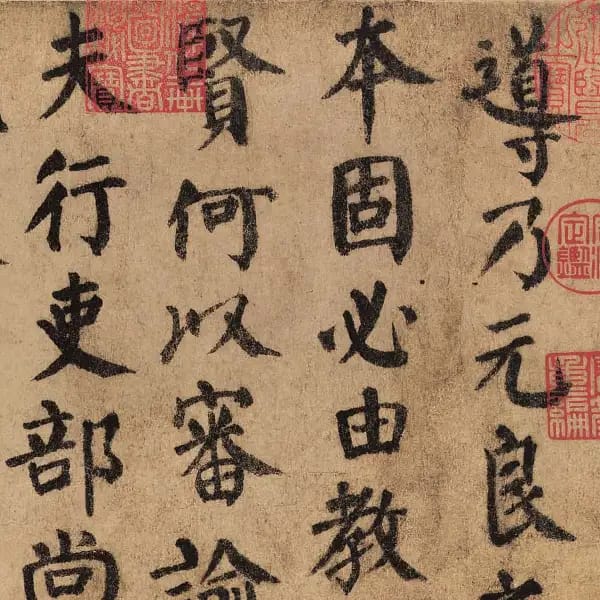 導乃元良
本固必由教
賢何以審論
夫行吏部尚